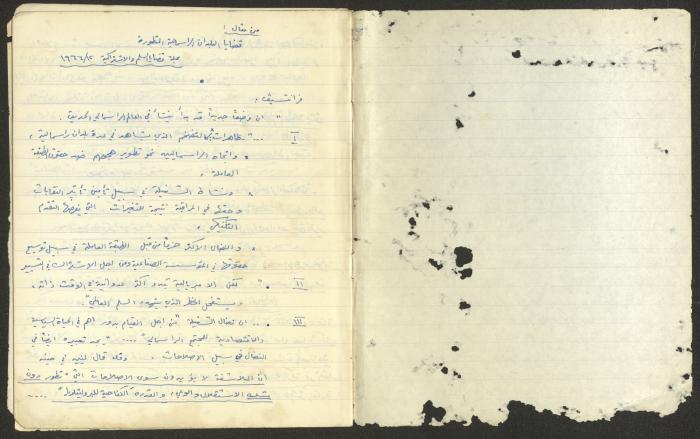 من مقال:
قضايا البلدان الرأسمالية المتطورة
مجلة قضايا السلم والاشتراكية ١٢/ ١٩٦٦
فرانتسيف:
" ان وضعاً جديداً قد بدأ ينشأ في العالم الرأسمالي
I ... " التضخم الذي يشاهد في عدة بلدان رأسمالية ،
• واتجاه الرأسماليين نحو تطوير هجومهم ضد حقوق الطبقة
العاملة ،
• ونشاط الشغيلة في سبيل تأمين تأثير النقابات
وحقها في المراقبة نتيجة للتغيرات التي يفرضها التقدم
التكنيكي ،
• والنضال الأكثر حزماً من قبل الطبقة العاملة في سبيل توسيع
حقوقها في المؤسسة الصناعية ومن اجل الاشتراك في التسيير
II " لكن الامبريالية تبدو اكثر عدوانية في الوقت ذاته ،
ويستفحل الخطر الذي يتهدد السلم العالمي "
III ... ان نضال الشغيلة " من اجل القيام بدور اهم في الحياة السياسية
والاقتصادية للمجتمع الرأسمالي " .... " يجد تعبيره ايضاً في
النضال في سبيل الاصلاحات . وقد قال لينين في حينه
ان البلاشفة لا يؤيدون سوى الاصلاحات التي " تطور دون
الاستقلال والوعي والقدرة الكفاحية للبروليتاريا " ....